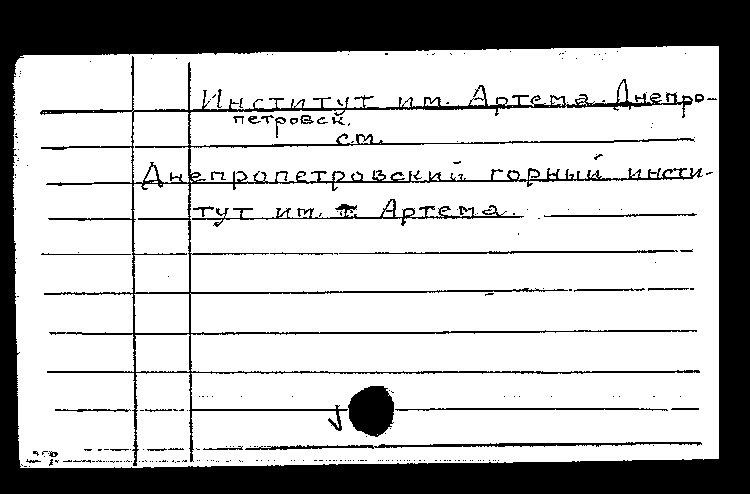 Институт им. Артема. Днепро-
петровск.
см.
Днепропетровский горный инсти-
тут им. Артема.